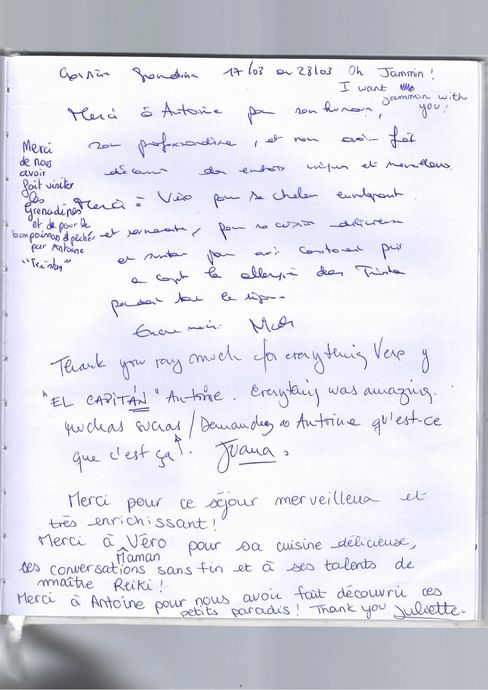 Croisière Grenadines 17/03 au 28/03 Oh Jammin!
I want jammin with you!
Merci à Antoine pour son humour,
son professionalisme, et nous avoir fait
découvrir des endroits uniques et merveilleux.
Merci
de nous
avoir
fait visiter
les
Grenadines
et de pour le
bon poisson pêcher
par Antoine
"Tristan"
Merci à Véro pour sa chaleur
et, pour sa cuisine délicieuse
et surtout pour avoir
en compte les allergies de Tristan
pendant tout le
Encore merci.
Thank you very much for everything Vero y
"EL CAPITÁN" Antoine. Everything was amazing.
muchas / Demandez a Antoine qu'est-ce
que c'est ça. Juana.
Merci pour ce séjour merveilleux et
très enrichissant!
Merci à Véro pour sa cuisine délicieuse,
Maman
ses conversations sans fin et à ses talents de
maître Reiki!
Merci à Antoine pour nous avoir fait découvrir ces
petits paradis! Thank you Juliette.